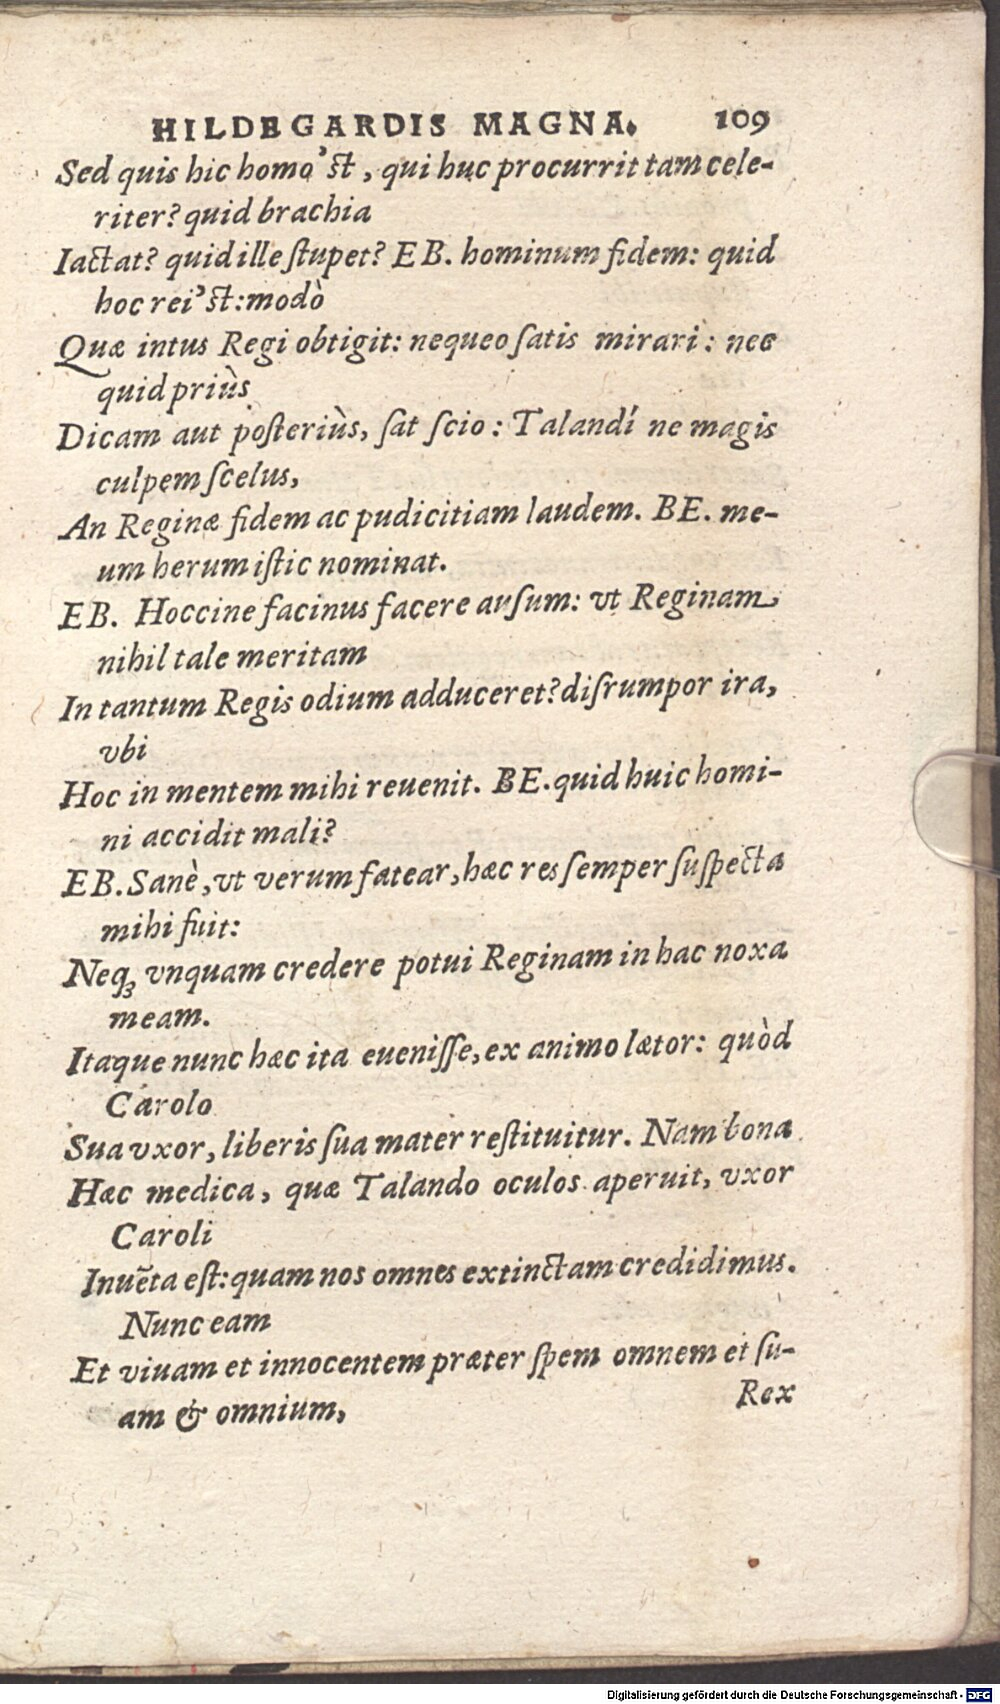 HILDEGARDIS MAGNA. 109
Sed quis hic homo'ſt, qui huc procurrit tam cele-
riter? quid brachia
Iactat? quid ille ſtupet? EB. hominum fidem: quid
hoc rei'ſt: modò
Quæ intus Regi obtigit: nequeo ſatis mirari: nec
quid priùs
Dicam aut poſteriùs, ſat ſcio: Talandí ne magis
culpem ſcelus,
An Reginæ fidem ac pudicitiam laudem. BE. me-
um herum iſtic nominat.
EB. Hoccine facinus facere auſum: vt Reginam
nihil tale meritam
In tantum Regis odium adduceret? diſrumpor ira,
vbi
Hoc in mentem mihi reuenit. BE. quid huic homi-
ni accidit mali?
EB. Sanè, vt verum fatear, hæc res ſemper ſuſpecta
mihi fuit:
Neqꝫ vnquam credere potui Reginam in hac noxa
meam.
Itaque nunc hæc ita eueniſſe, ex animo lætor: quòd
Carolo
Sua vxor, liberis ſua mater reſtituitur. Nam bona
Hæc medica, quæ Talando oculos aperuit, vxor
Caroli
Inuẽta eſt: quam nos omnes extinctam credidimus.
Nunc eam
Et viuam et innocentem præter ſpem omnem et ſu-
am & omnium,
Rex
Digitalisierung gefördert durch die Deutsche Forschungsgemeinschaft - DFG